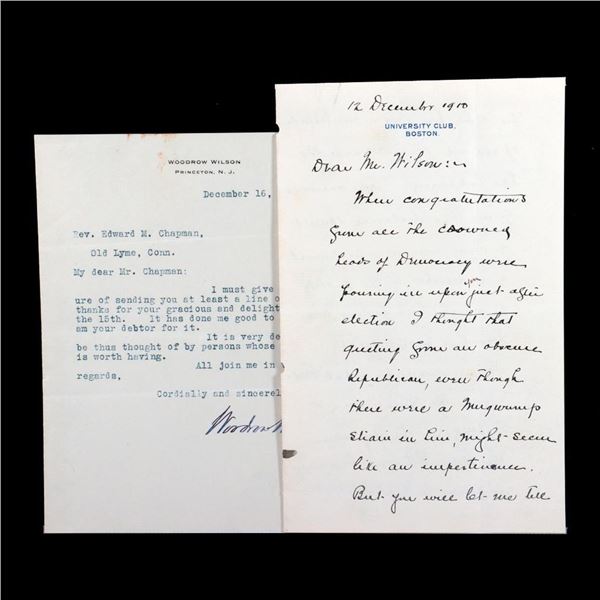 WOODROW WILSON
PRINCETON, N. J.
December 16,
Rev. Edward M. Chapman,
Old Lyme, Conn.
My dear Mr. Chapman:
I must give
ure of sending you at least a line o
thanks for your gracious and delight
the 15th. It has done me good to
am your debtor for it.
It is very de
be thus thought of by persons whose
is worth having.
All join me in
regards,
Cordially and sincerel
Woodrow W
12 December 1910
UNIVERSITY CLUB,
BOSTON.
Dear Mr. Wilson:
When congratulations
from all the crowned
heads of Democracy were
pouring in upon you just after
election I thought that
greeting from an obscure
Republican, even though
there were a Mugwump
strain in him, might seem
like an impertinence.
But you will let me tell